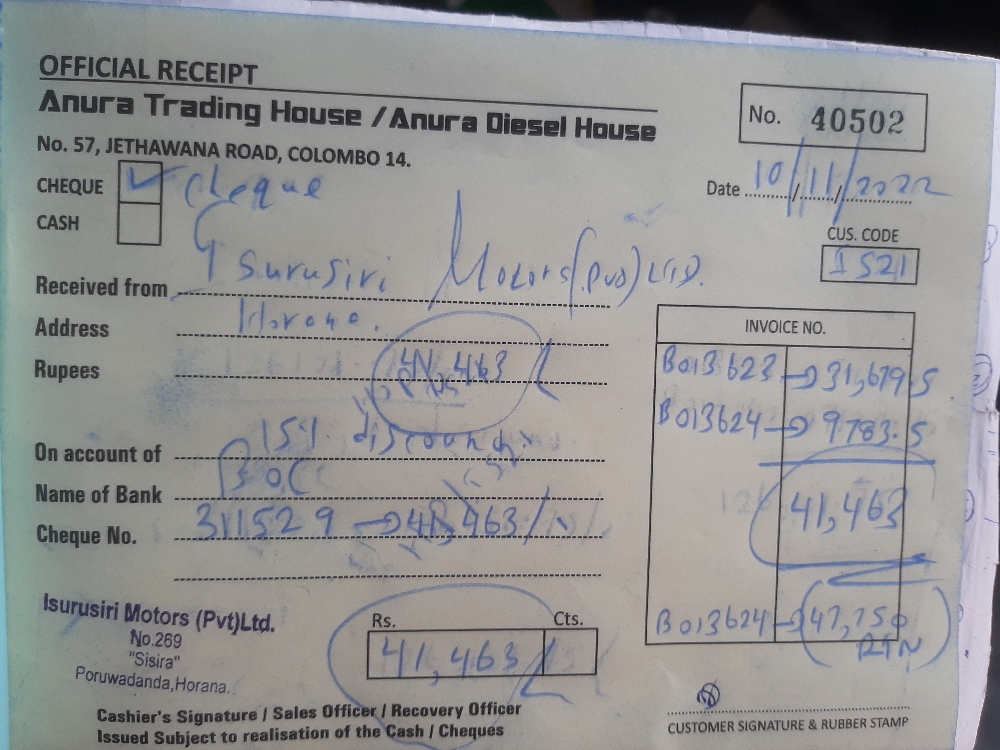 OFFICIAL RECEIPT
Anura Trading House / Anura Diesel House
No. 57, JETHAWANA ROAD, COLOMBO 14.
No. 40502
CHEQUE ✓ cheque
CASH
Date 10/11/2022
CUS. CODE
I521
Received from Isurusiri Motors (Pvo) LTD.
Address Horana.
Rupees 41,463/
On account of 15% discount
Name of Bank B.O.C
Cheque No. 311529 → 41,463/
INVOICE NO.
B013623 → 31,679.5
B013624 → 9783.5
41,463
B013624 → (47,750
RTN)
Isurusiri Motors (Pvt)Ltd.
No.269
"Sisira"
Poruwadanda,Horana.
Rs. Cts.
41,463/
Cashier's Signature / Sales Officer / Recovery Officer
Issued Subject to realisation of the Cash / Cheques
CUSTOMER SIGNATURE & RUBBER STAMP